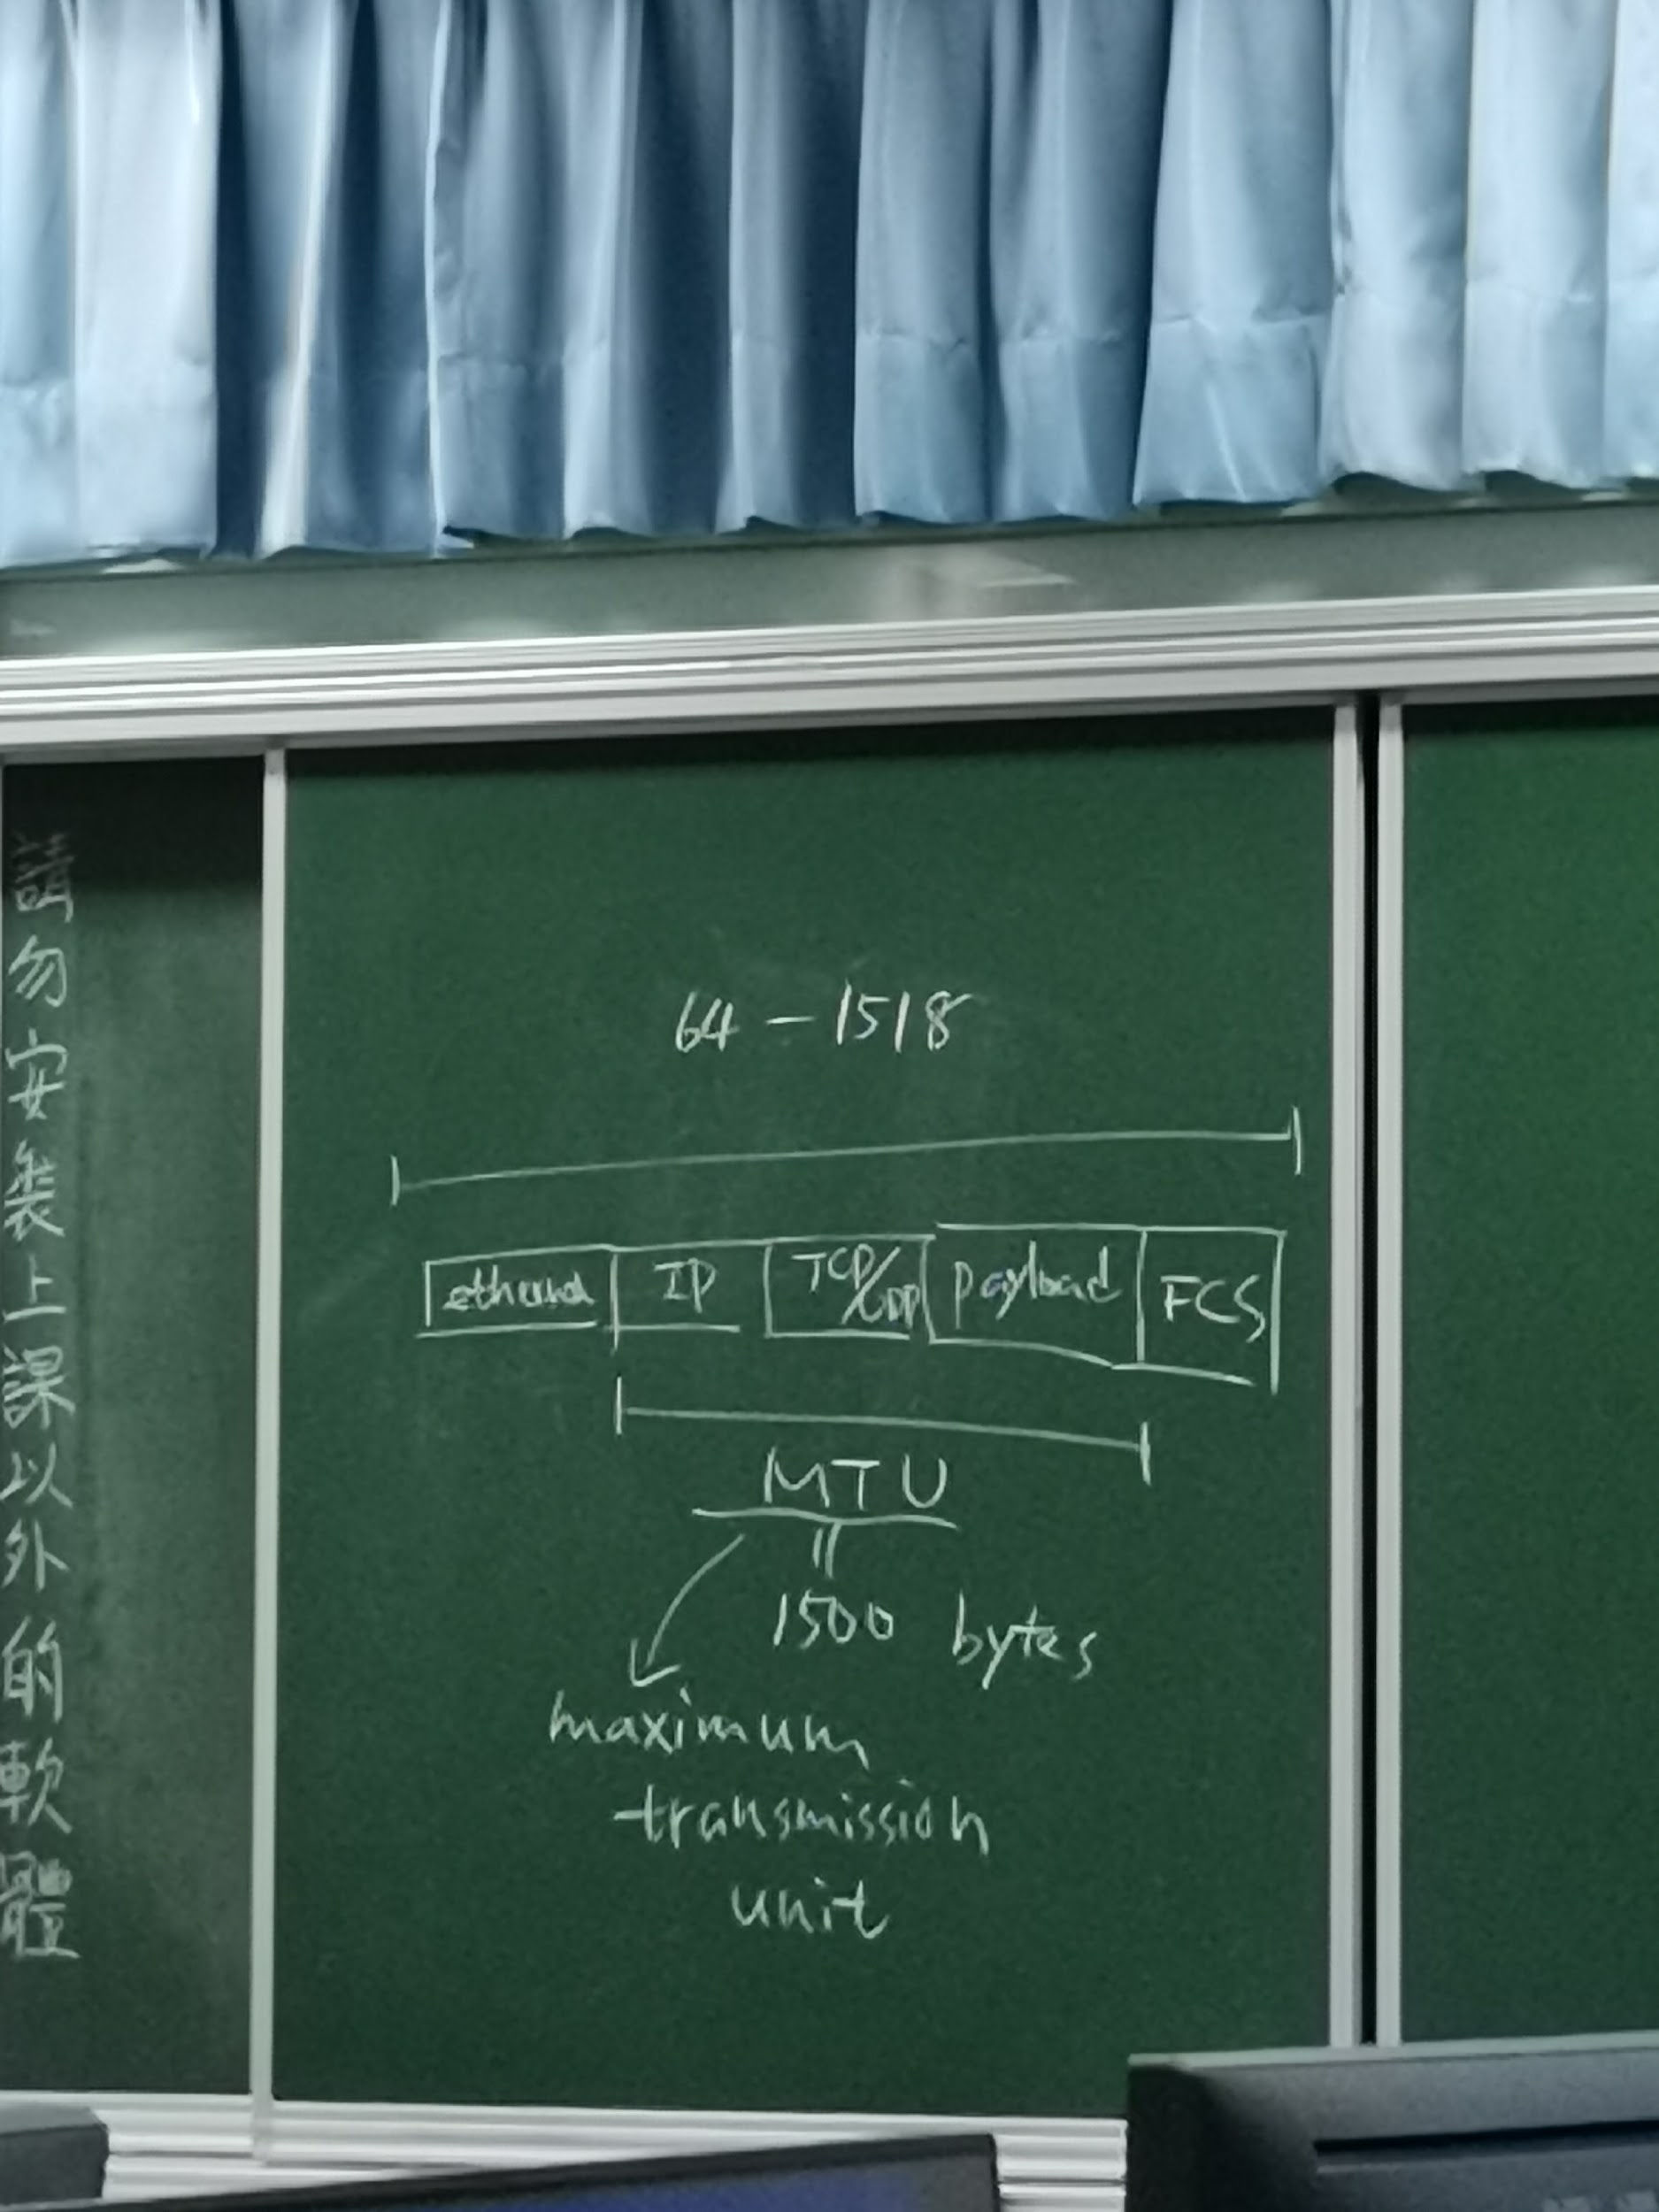 請勿安裝上課以外的軟體
64 - 1518
ethernet IP TCP/UDP payload FCS
MTU
=
1500 bytes
maximum
transmission
unit